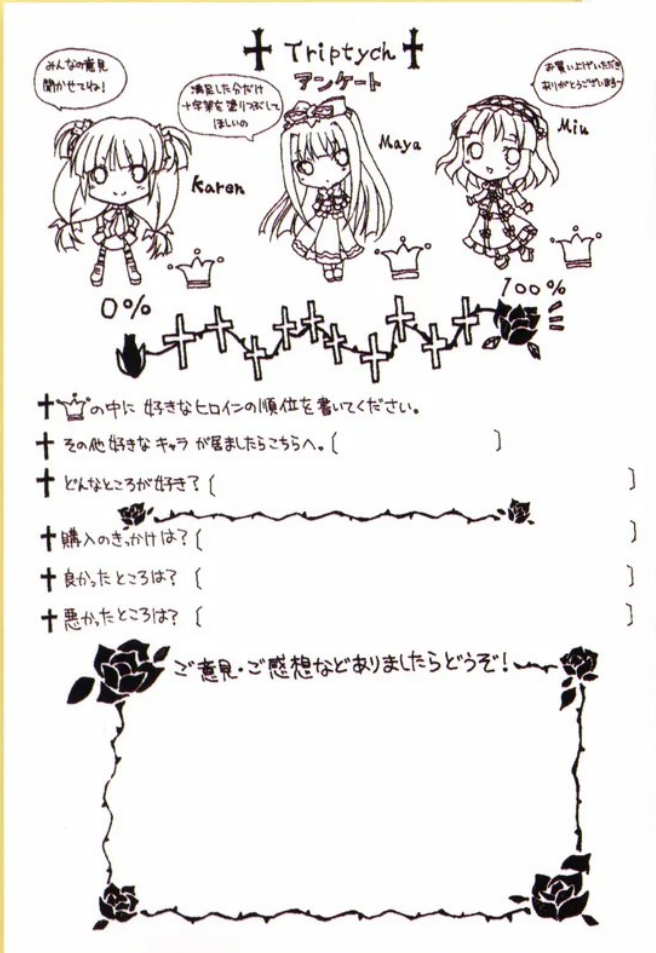 ✝ Triptych ✝
アンケート
みんなの意見
聞かせてね!
満足した分だけ
十字架を塗りつぶして
ほしいの
お買い上げいただき
ありがとうございます〜
Karen
Maya
Miu
0%
100%
✝ の中に 好きなヒロインの順位を書いてください。
✝ その他好きなキャラが居ましたらこちらへ。[ ]
✝ どんなところが好き?[ ]
✝ 購入のきっかけは?[ ]
✝ 良かったところは?[ ]
✝ 悪かったところは?[ ]
ご意見・ご感想などありましたらどうぞ!